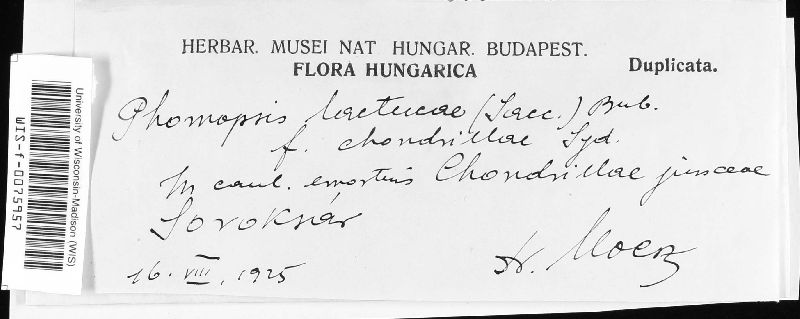 HERBAR. MUSEI NAT HUNGAR. BUDAPEST.
FLORA HUNGARICA
Duplicata.
Phomopsis lactucae (Sacc.) Bub.
f. chondrillae Syd.
In caul. emortuis Chondrillae junceae
Soroksár
16. VIII. 1925
Moesz
University of Wisconsin-Madison (WIS)
WIS-f-0075957